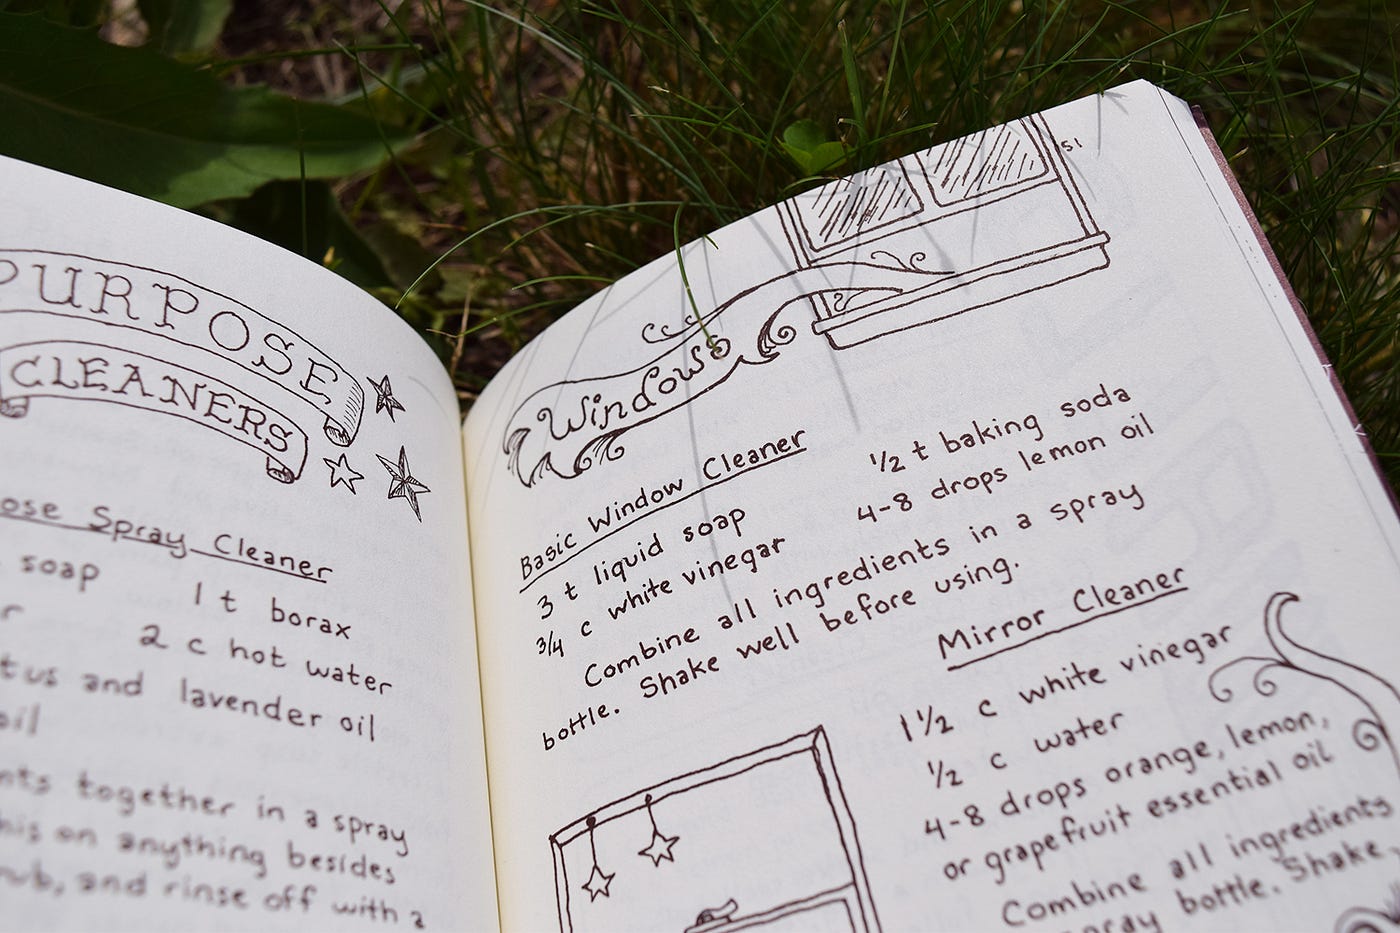 PURPOSE
CLEANERS
Spray Cleaner
soap 1 t borax
2 c hot water
and lavender oil
oil
together in a spray
on anything besides
and rinse off with a
51
Windows
Basic Window Cleaner
3 t liquid soap ½ t baking soda
¾ c white vinegar 4-8 drops lemon oil
Combine all ingredients in a spray
bottle. Shake well before using.
Mirror Cleaner
1½ c white vinegar
½ c water
4-8 drops orange, lemon,
or grapefruit essential oil
Combine all ingredients
bottle. Shake